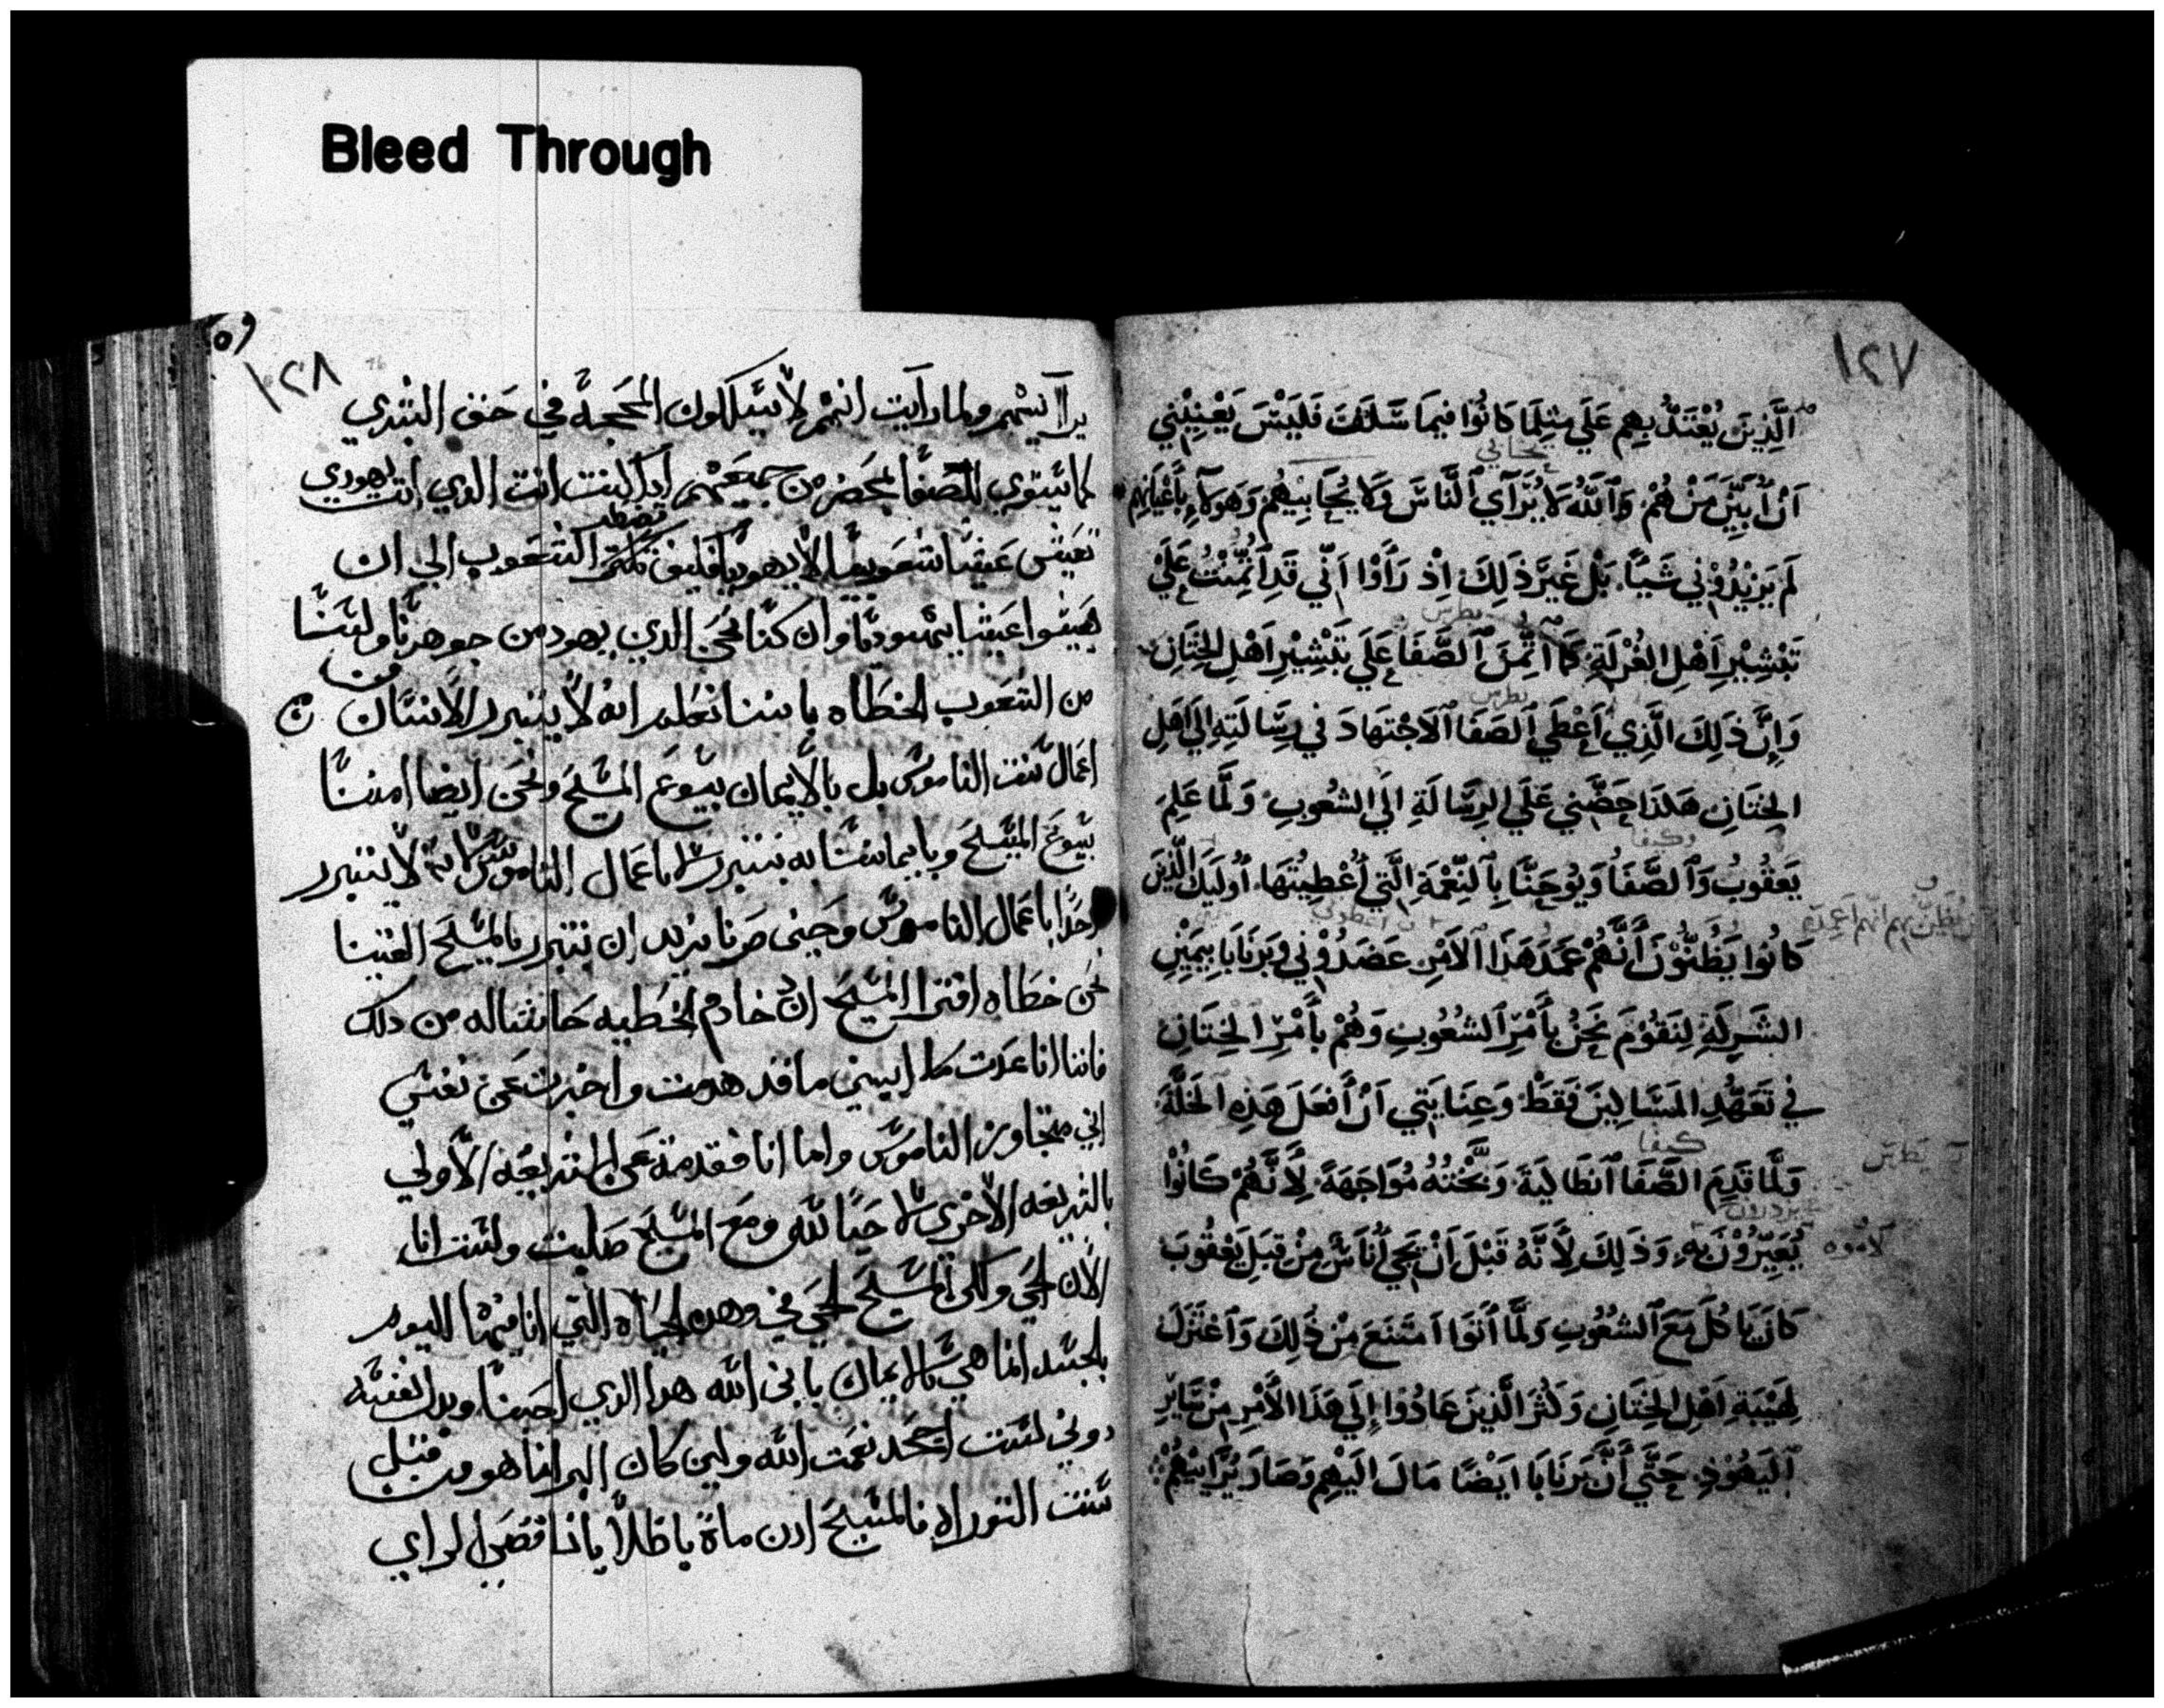 Bleed Through
١٢٧
الَّذِينَ يُعْتَدُّ بِهِم عَلَي مِثلِمَا كَانُوا فِيمَا سَلَفَ فَلَيْسَ يَعْنِيْنِي
يحابي
اَنْ اُبَيِّنَ مَنْ هُمْ وَاَللَّهُ لَا يُرَآي اَلنَّاسَ وَلَا يُحَابِيْهُمْ وَهَولَآءِ بِأَعْيَانِهِم
لَم يَزِيْدُوْنِي شَيًا. بَلْ غَيرَ ذَلِكَ اِذْ رَأَوْا اَنِّي قَدِ اَتُّمِنْتُ عَلَيْ
بطرس
تَبْشِيْرِ اَهْلِ الغُرْلَةِ كَمَا اَتُّمِنَ اَلصَّفَا عَلَي تَبْشِيْرِ اَهْلِ الخِتَانِ
بطرس
وَاِنَّ ذَلِكَ الَّذِي اَعْطَي اَلصَفَا اَلاَجْتِهَادَ فِي رِسَالَتِهِ اِلَي اَهْلِ
الخِتَانِ هَكَذَا حَضَّنِي عَلَي الرِسَالَةِ اِلَي الشعُوبِ وَلَمَّا عَلِمَ
وكيفا
يَعقُوبُ وَاَلصَّفَا وَيُوحَنَّا بِاَلنِّعْمَةِ الَّتِي اُعْطِيْتُهَا. اُولَيِكَ الَّذِينَ
كَانُوا يَظُنُّوْنَ أَنَّهُمْ عَمَدَ هَذَا اَلاَمْرِ عَضَدُوْنِي وَبَرنَابَا بِيَمِيْنِ
الشَرِكَةِ لِنَقُوْمَ نَحْنُ بِأَمْرِ اَلشعُوبِ وَهُمْ بِأَمْرِ اَلخِتَانِ
فِي تَعَهُّدِ المَسَاكِينَ فَقَطْ وَعِنَايَتِي اَنْ أَفعَلَ هَذِهِ الخَلَّةَ
كيفا
بطرس
وَلَمَّا قَدِمَ الصَّفَا اَنطَاكِيَةَ وَبَّخْتُهُ مُوَاجَهَةً لِأَنَّهُمْ كَانُوْا
يُعَيِّرُوْنَ بِهِ. وَذَلِكَ لِأَنَّهُ قَبْلَ اَنْ يَجِيَ أُنَاسٌ مِنْ قِبَلِ يَعْقُوبَ
كَانَ يَاكُلُ مَعَ اَلشعُوبِ وَلَمَّا أَتَوَا اَمتَنَعَ مِنْ ذَلِكَ وَاَعْتَزَلَ
لِهَيْبَةِ اَهْلِ الخِتَانِ وَكَثُرَ الَّذِينَ عَادُوا اِلَي هَذَا الأَمْرِ مِنْ سَايِرِ
اَليَهُوْدِ حَتَّي أَنَّ بَرنَابَا اَيْضًا مَالَ اِلَيْهِم وَصَارَ يُرَايِيْهُمْ
١٢٨
يراآييهم ولما رايت انهم لا يسلكون المحجة في حق البشري
يهودي
تعيش عيشا شعوبيا لا يهوديا فكيف تضطر الشعوب الي ان
يعيشوا عيشا يهوديا وان كنا نحن الدين يهود من جوهرنا ولسنا
من الشعوب الخطاه باننا نعلم انه لا يتبرر الانسان من
اعمال سنت الناموس بل بالايمان بيسوع المسيح ونحن ايضا امنا
بيسوع المسيح وبايماننا به نتبرر لا باعمال الناموس لانه لا يتبرر
احدا باعمال الناموس وحين صرنا نريد ان نتبرر بالمسيح الفينا
نحن خطاه افترا المسيح ادن خادم الخطيه حاشا له من دلك
فاننا انا عدت ابني ما قد هدمت واخبرت عن نفسي
اني متجاوز الناموس واما انا فقد مت عن الشريعه الاولي
بالشريعه الاخري لاحيا لله ومع المسيح صلبت ولست انا
الان الحي ولكن المسيح الحي في وهده الحياه التي انا فيها اليوم
بالجسد انما هي بالايمان بابن الله هدا الدي احبنا وبدل نفسه
دوني لست اجحد نعمت الله ولين كان البر انما هو من قبل
سنت التوراه فالمسيح ادن مات باطلا يا ناقصي الراي